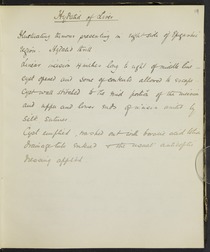 Hydatid of Liver
Fluctuating tumour presenting in right side of Epigastric
region. Hydatid thrill
Linear incision 4 inches long to right of middle line
cyst opened and some of contents allowed to escape
Cyst wall stitched to the mid portion of the incision
and upper and lower ends of incision united by
silk sutures
Cyst emptied, washed out with boracic acid lotion
Drainage tube inserted & the usual antiseptic
Dressing applied